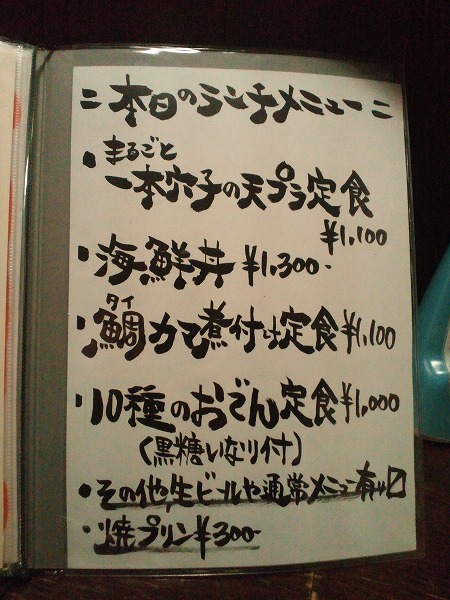 =本日のランチメニュー=
・まるごと
一本穴子の天プラ定食
¥1,100
・海鮮丼 ¥1,300-
タイ
・鯛カマ煮付け定食¥1,100
・10種のおでん定食¥1,000
(黒糖いなり付)
・その他、生ビールや通常メニュー有り〼
・焼プリン¥300-